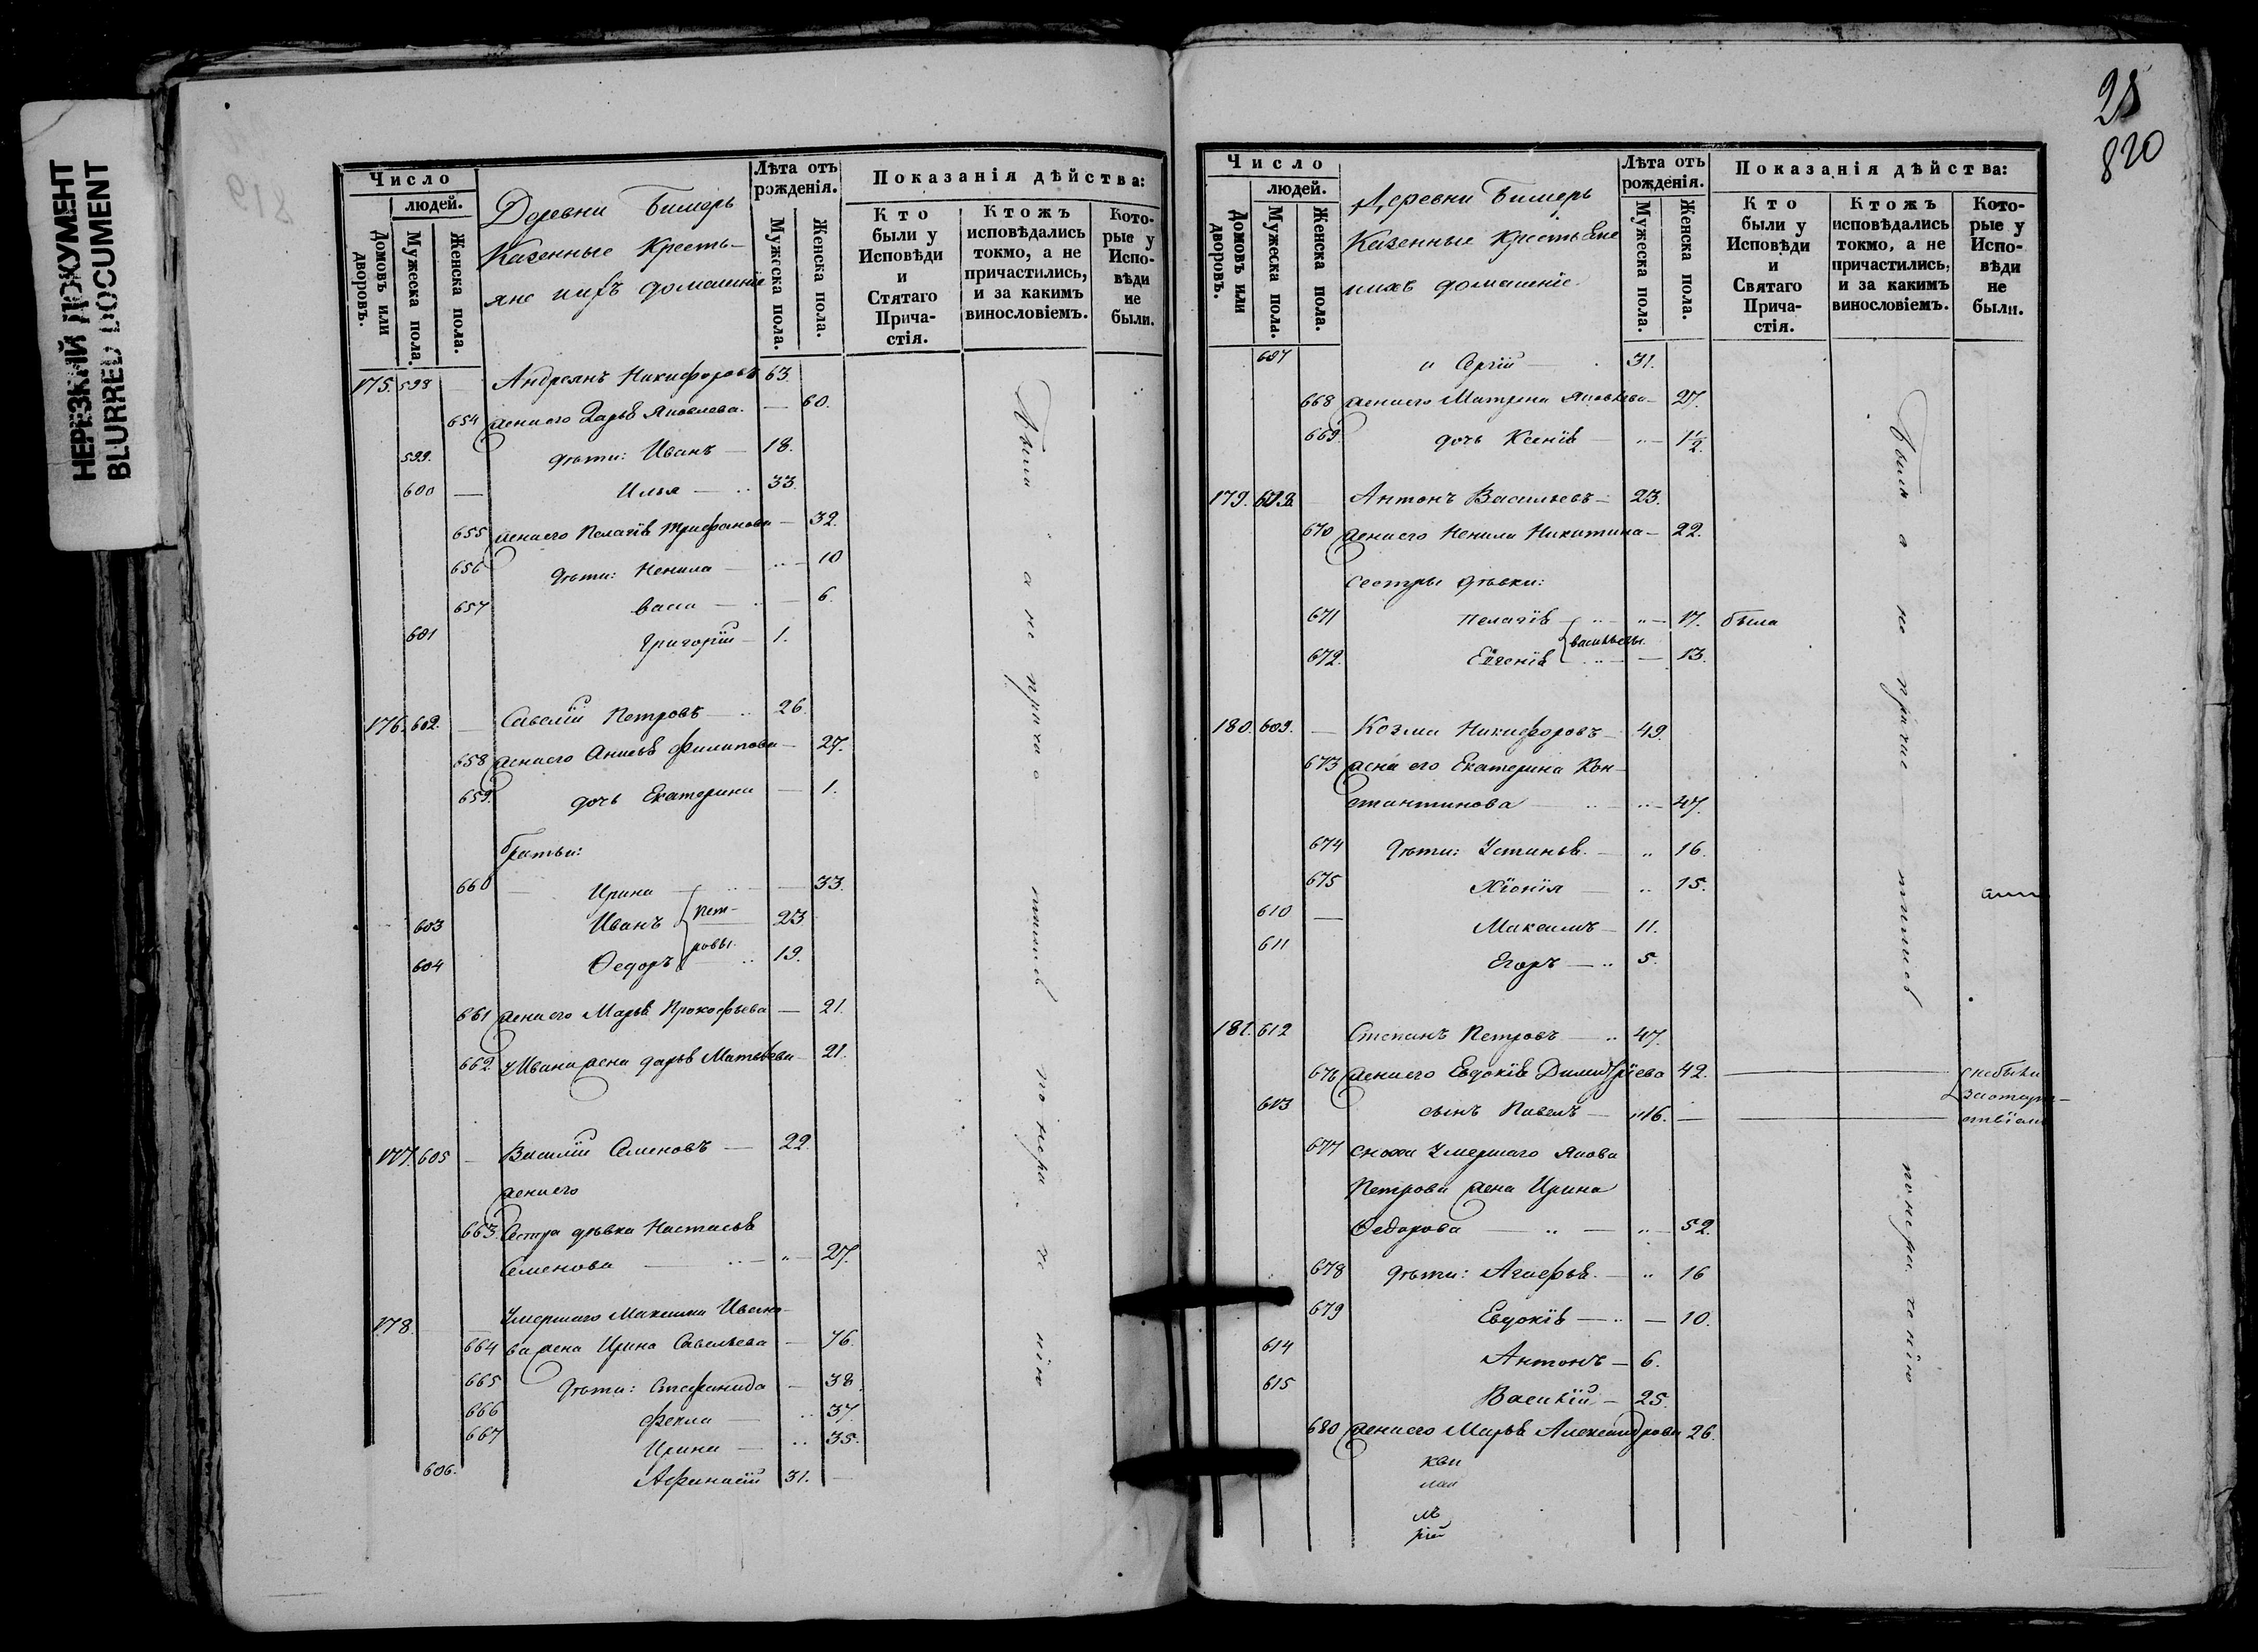 НЕРЕЗКИЙ ДОКУМЕНТ
BLURRED DOCUMENT
Число
людей.
Домовъ или дворовъ.
Мужеска пола.
Женска пола.
Деревни Бимерь
Казенные Кресть-
яне ихъ домашніе
Лѣта отъ рожденія.
Мужеска пола.
Женска пола.
Показанія дѣйства:
Кто были у Исповѣди и Стятаго Прича-стія.
Ктожъ исповѣдались токмо, а не причастились, и за какимъ винословіемъ.
Кото-рые у Испо-вѣди не были.
175. 598 Андреянъ Никифоровъ 63.
654 жена его Дарья Яковлева. 60.
599. дѣти: Иванъ 18.
600 Илья 33.
655 жена его Пелагія Трифонова 32.
656 дѣти: Ненила 10
657 Васа 6.
601 Григорій 1.
176. 602. Савелій Петровъ 26.
658 жена его Анисья Филипова 27.
659. дочь Екатерина 1.
братьи:
660 Ирина 33.
603 Иванъ Пет- 23
604 Ѳедоръ ровы. 19.
661 жена его Марья Прокофьева 21.
662. у Ивана жена Дарья Матвѣева 21.
177. 605 Василій Семеновъ 22.
жена его
663. Сестра дѣвка Настасья
Семенова 27.
178. Умершаго Максима Ивано-
664 ва жена Ирина Савельева 76.
665 дѣти: Стефанида 38.
666 Фекла 37.
667 Ирина 35.
606. Афанасій 31.
28
820
Число
людей.
Домовъ или дворовъ.
Мужеска пола.
Женска пола.
Деревни Бимерь
Казенные Крестьяне
ихъ домашніе.
Лѣта отъ рожденія.
Мужеска пола.
Женска пола.
Показанія дѣйства:
Кто были у Исповѣди и Святаго Прича-стія.
Ктожъ исповѣдались токмо, а не причастились, и за какимъ винословіемъ.
Кото-рые у Испо-вѣди не были.
607 и Сергій 31.
668 жена его Матрена Яковлева 27.
669. дочь Ксенія 1 1/2.
179. 608. Антонъ Васильевъ 23.
670 жена его Ненила Никитина 22.
сестры дѣвки:
671 Пелагія 17. была
Васильевы.
672. Евгенія 13.
180. 609. Козма Никифоровъ 49.
673 жена его Екатерина Кон-
стантинова 47.
674 дѣти: Устинья. 16.
675 Хіонія 15.
610 Максимъ 11.
611 Егоръ 5.
181. 612 Степанъ Петровъ 47.
676 жена его Евдокія Димитріева 42. не были
613 сынъ Павелъ 16.
677 сноха умершаго Якова
Петрова жена Ирина
Ѳедорова 52.
678 дѣти: Агафья. 16
679 Евдокія 10.
614 Антонъ 6.
615 Василій 25.
680 жена его Марья Александрова 26.